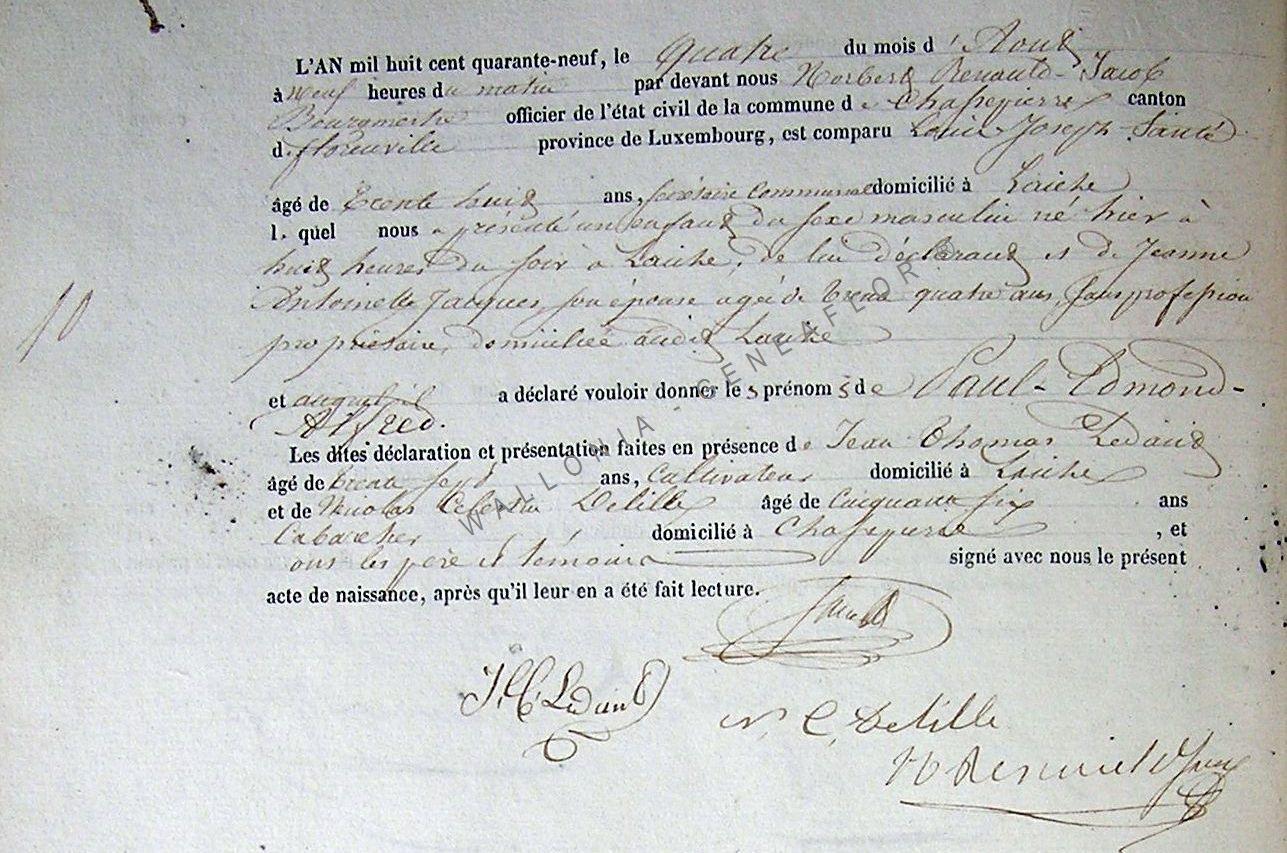 L'AN mil huit cent quarante-neuf, le quatre du mois d'Aout
à neuf heures du matin par devant nous Norbert Renauld-Jacob
Bourgmestre officier de l'état civil de la commune de Chassepierre canton
d. florenville province de Luxembourg, est comparu Louis Joseph
âgé de trente huit ans, secrétaire communal domicilié à Laiche
l. quel nous a présenté un enfant du sexe masculin né hier à
huit heures du soir à Laiche, de lui déclarant et de Jeanne
Antoinette Jacques son épouse agée de trente quatre ans, sans profession
propriétaire, domiciliée audit Laiche
et auquel il a déclaré vouloir donner les prénoms de Paul-Edmond-
Alfred.
Les dites déclaration et présentation faites en présence de Jean Thomas Ledant
âgé de trente sept ans, Cultivateur domicilié à Laiche
et de Nicolas Celestin Delille âgé de cinquante six ans
Cabaretier domicilié à Chassepierre, et
ont les père et témoins signé avec nous le présent
acte de naissance, après qu'il leur en a été fait lecture.
J. T. Ledant
N. C. Delille
10
WALLONIA - GENEAFLOR ®